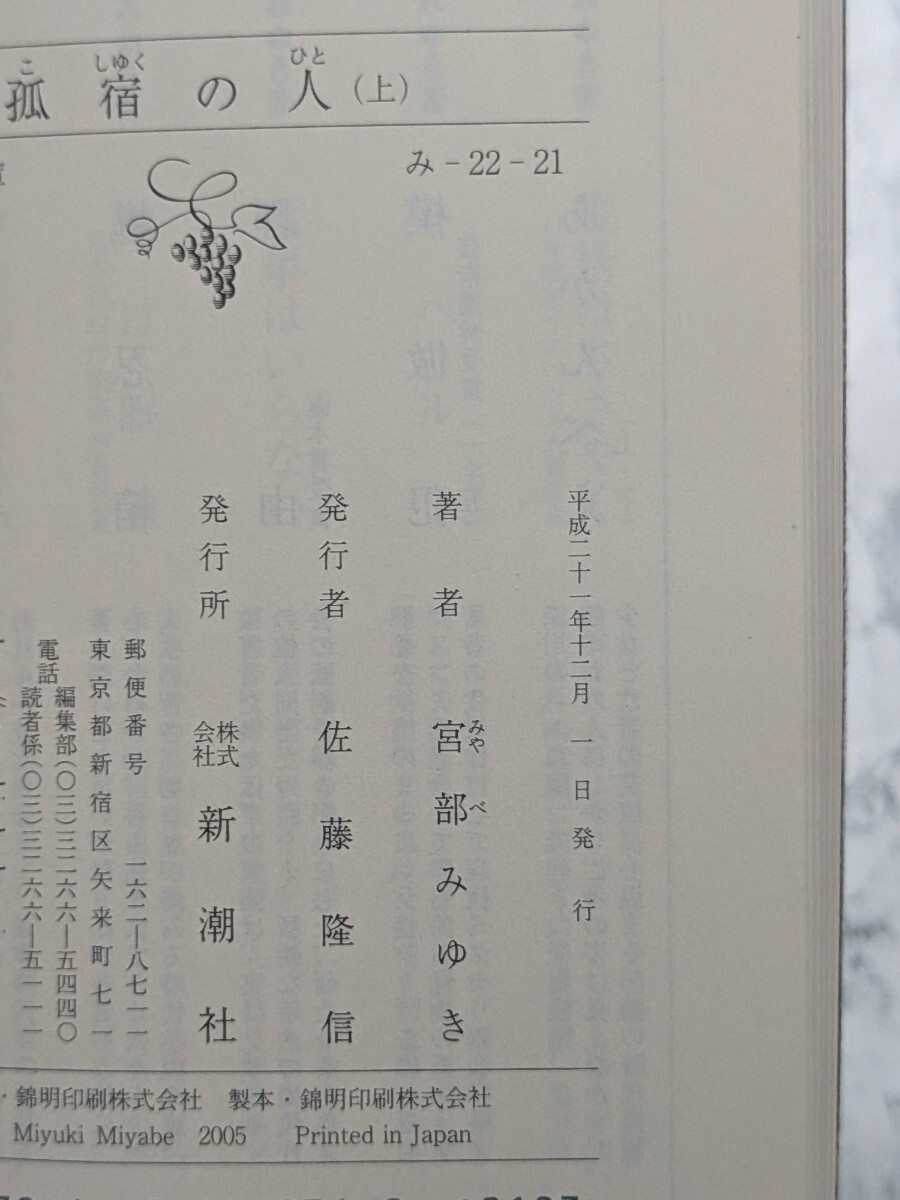 孤宿の人（上）
み-22-21
平成二十一年十二月 一 日 発 行
著者 宮部みゆき
発行者 佐藤隆信
発行所 株式会社 新潮社
郵便番号 一六二―八七一一
東京都新宿区矢来町七一
電話 編集部(〇三)三二六六―五四四〇
読者係(〇三)三二六六―五一一一
・錦明印刷株式会社 製本・錦明印刷株式会社
Miyuki Miyabe 2005 Printed in Japan